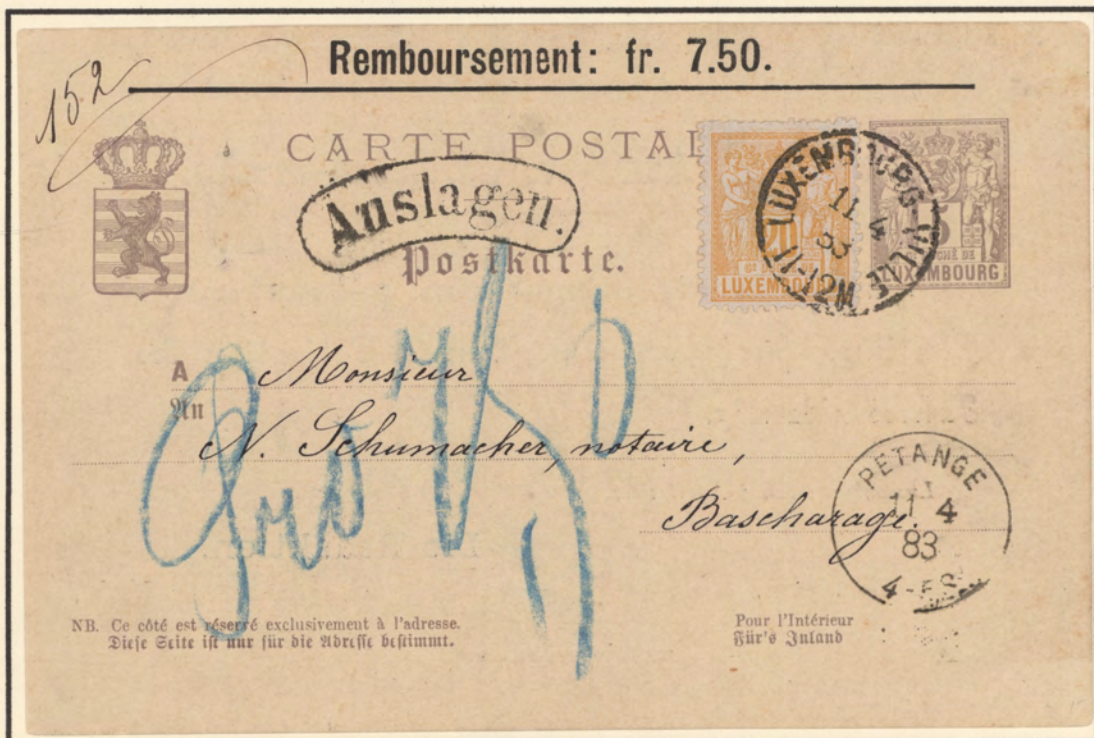 Remboursement: fr. 7.50.
152
CARTE POSTAL
Auslagen.
Postkarte.
20
LUXEMBOURG
LUXEMBOURG-VILLE
11 4
83
11-12M
5
CHÉ DE
LUXEMBOURG
A Monsieur
An
N. Schumacher, notaire,
Bascharage.
PETANGE
11 4
83
4-5S
NB. Ce côté est réservé exclusivement à l'adresse.
Diese Seite ist nur für die Adresse bestimmt.
Pour l'Intérieur
Für's Inland